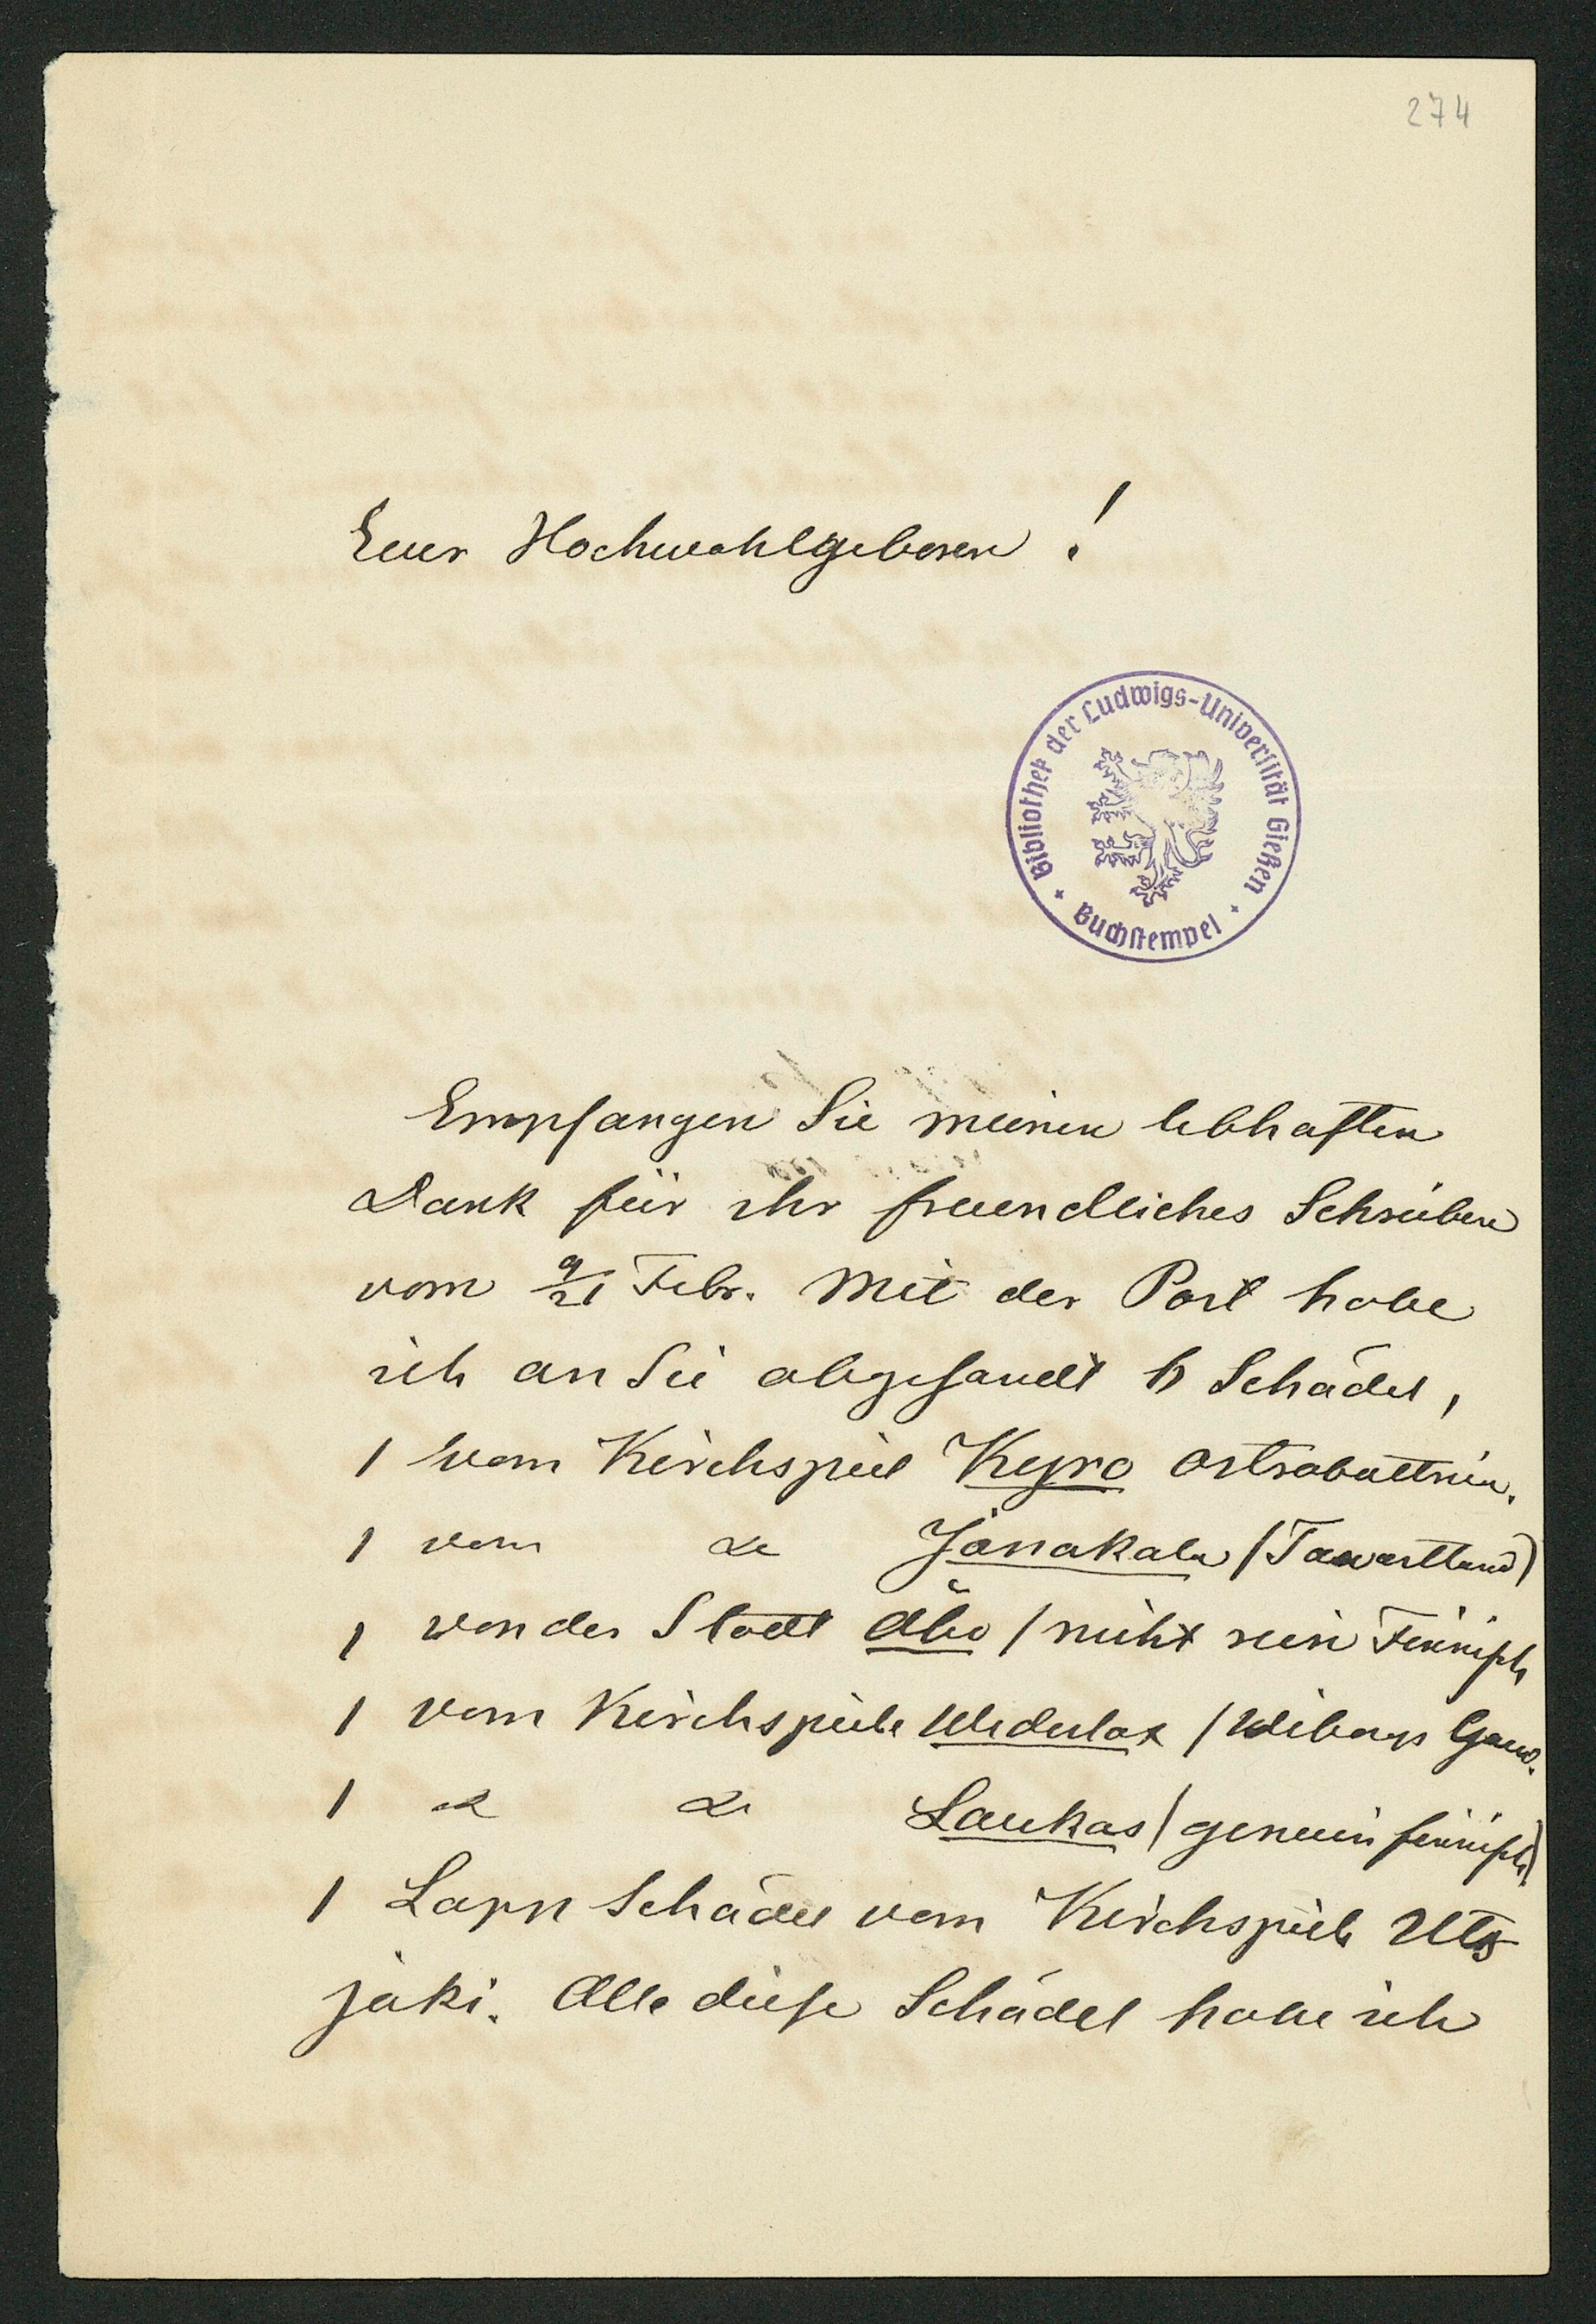 274
Euer Hochwohlgeboren!
Bibliothek der Ludwigs-Universität Gießen
Buchstempel
Empfangen Sie meinen lebhaften
Dank für ihr freundliches Schreiben
vom 9/21 Febr. Mit der Post habe
ich an Sie abgesandt 6 Schädel,
1 vom Kirchspiel Kyro Ostrobottnien.
1 vom do Janakala (Tawastland)
1 von der Stadt Åbo (nicht rein Finnisch
1 vom Kirchspiele Wederlax (Wiborgs Gouv.
1 do do Laukas (gemein finnisch)
1 Lapp Schädel vom Kirchspiele Uts
joki. Alle diese Schädel habe ich